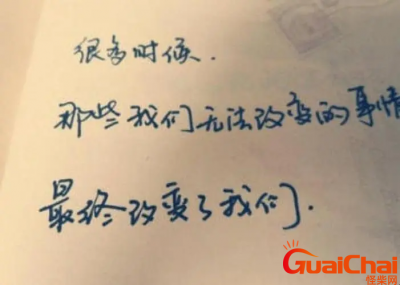 很多时候.
那些我们无法改变的事情
最终改变了我们.
GuaiChai
怪柴网